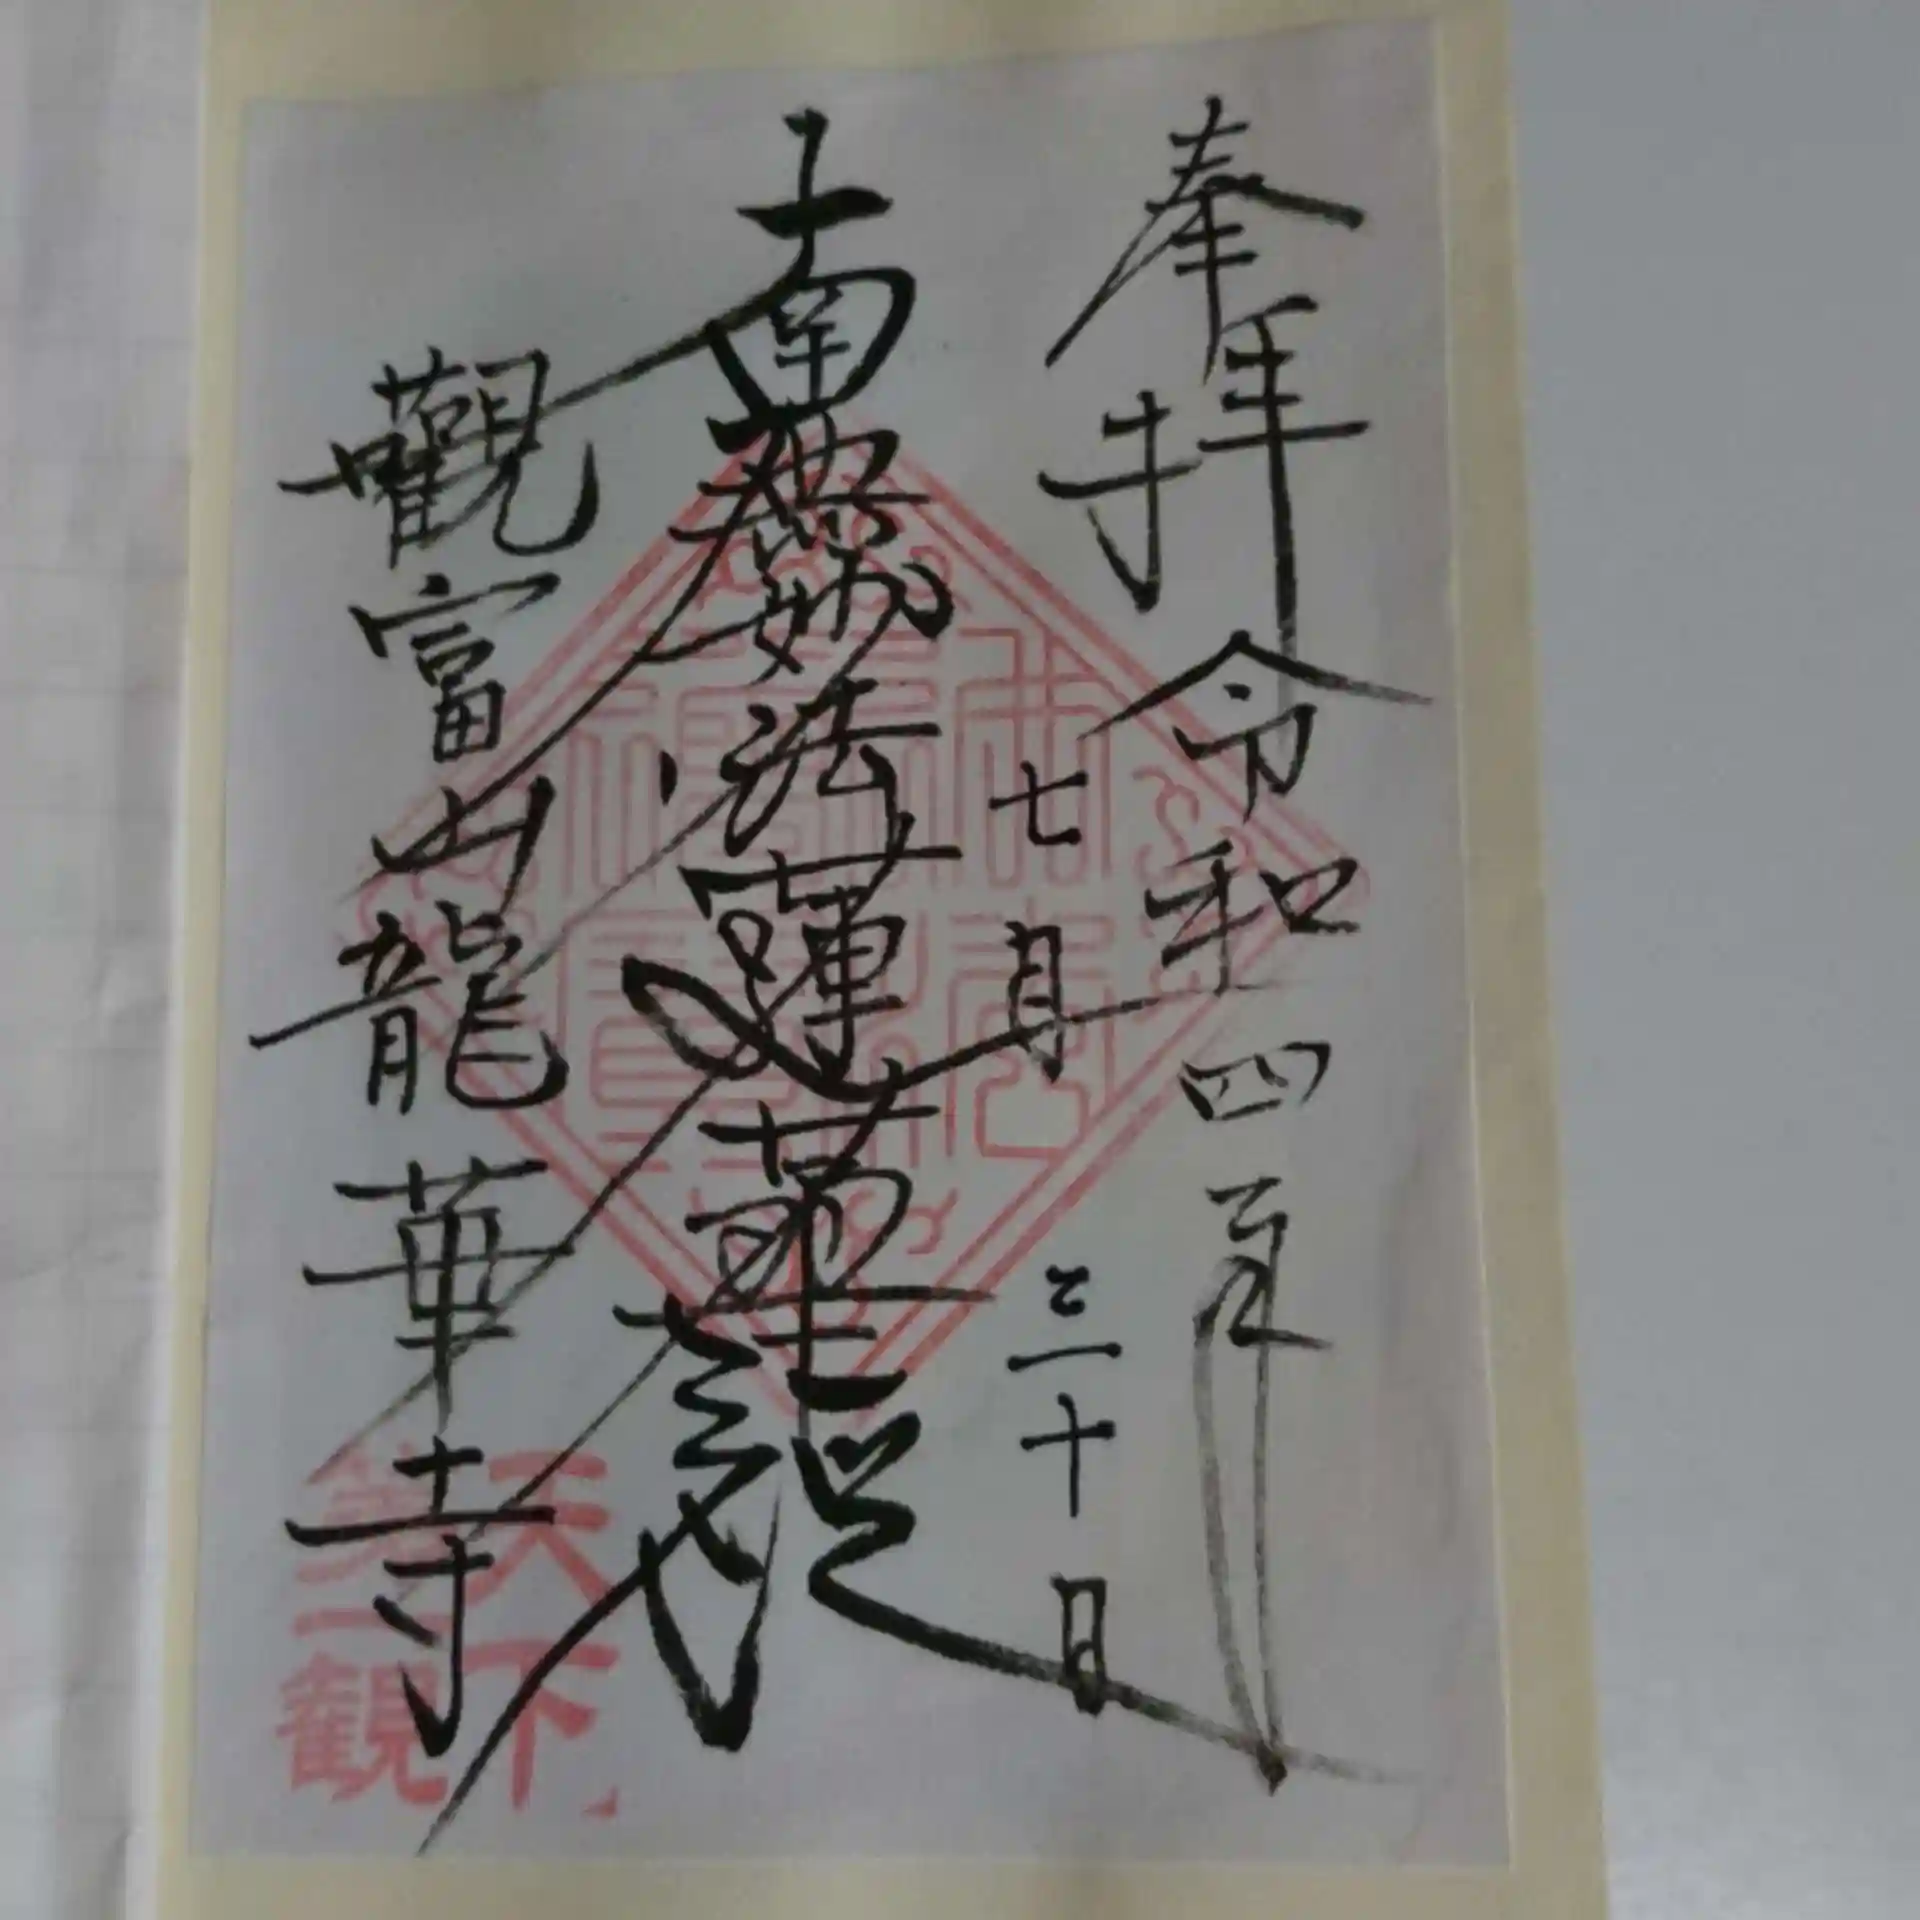 奉拝 令和四年
七月三十日
南無妙法蓮華経
觀富山龍華寺
天下
第一観